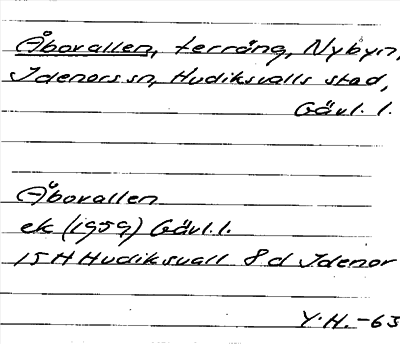 Åborallen, terräng, Nybyn,
Idenors sn, Hudiksvalls stad,
Gävl. l.
Åborallen
ek (1959) Gävl. l.
15H Hudiksvall 8d Idenor
Y.H. -63